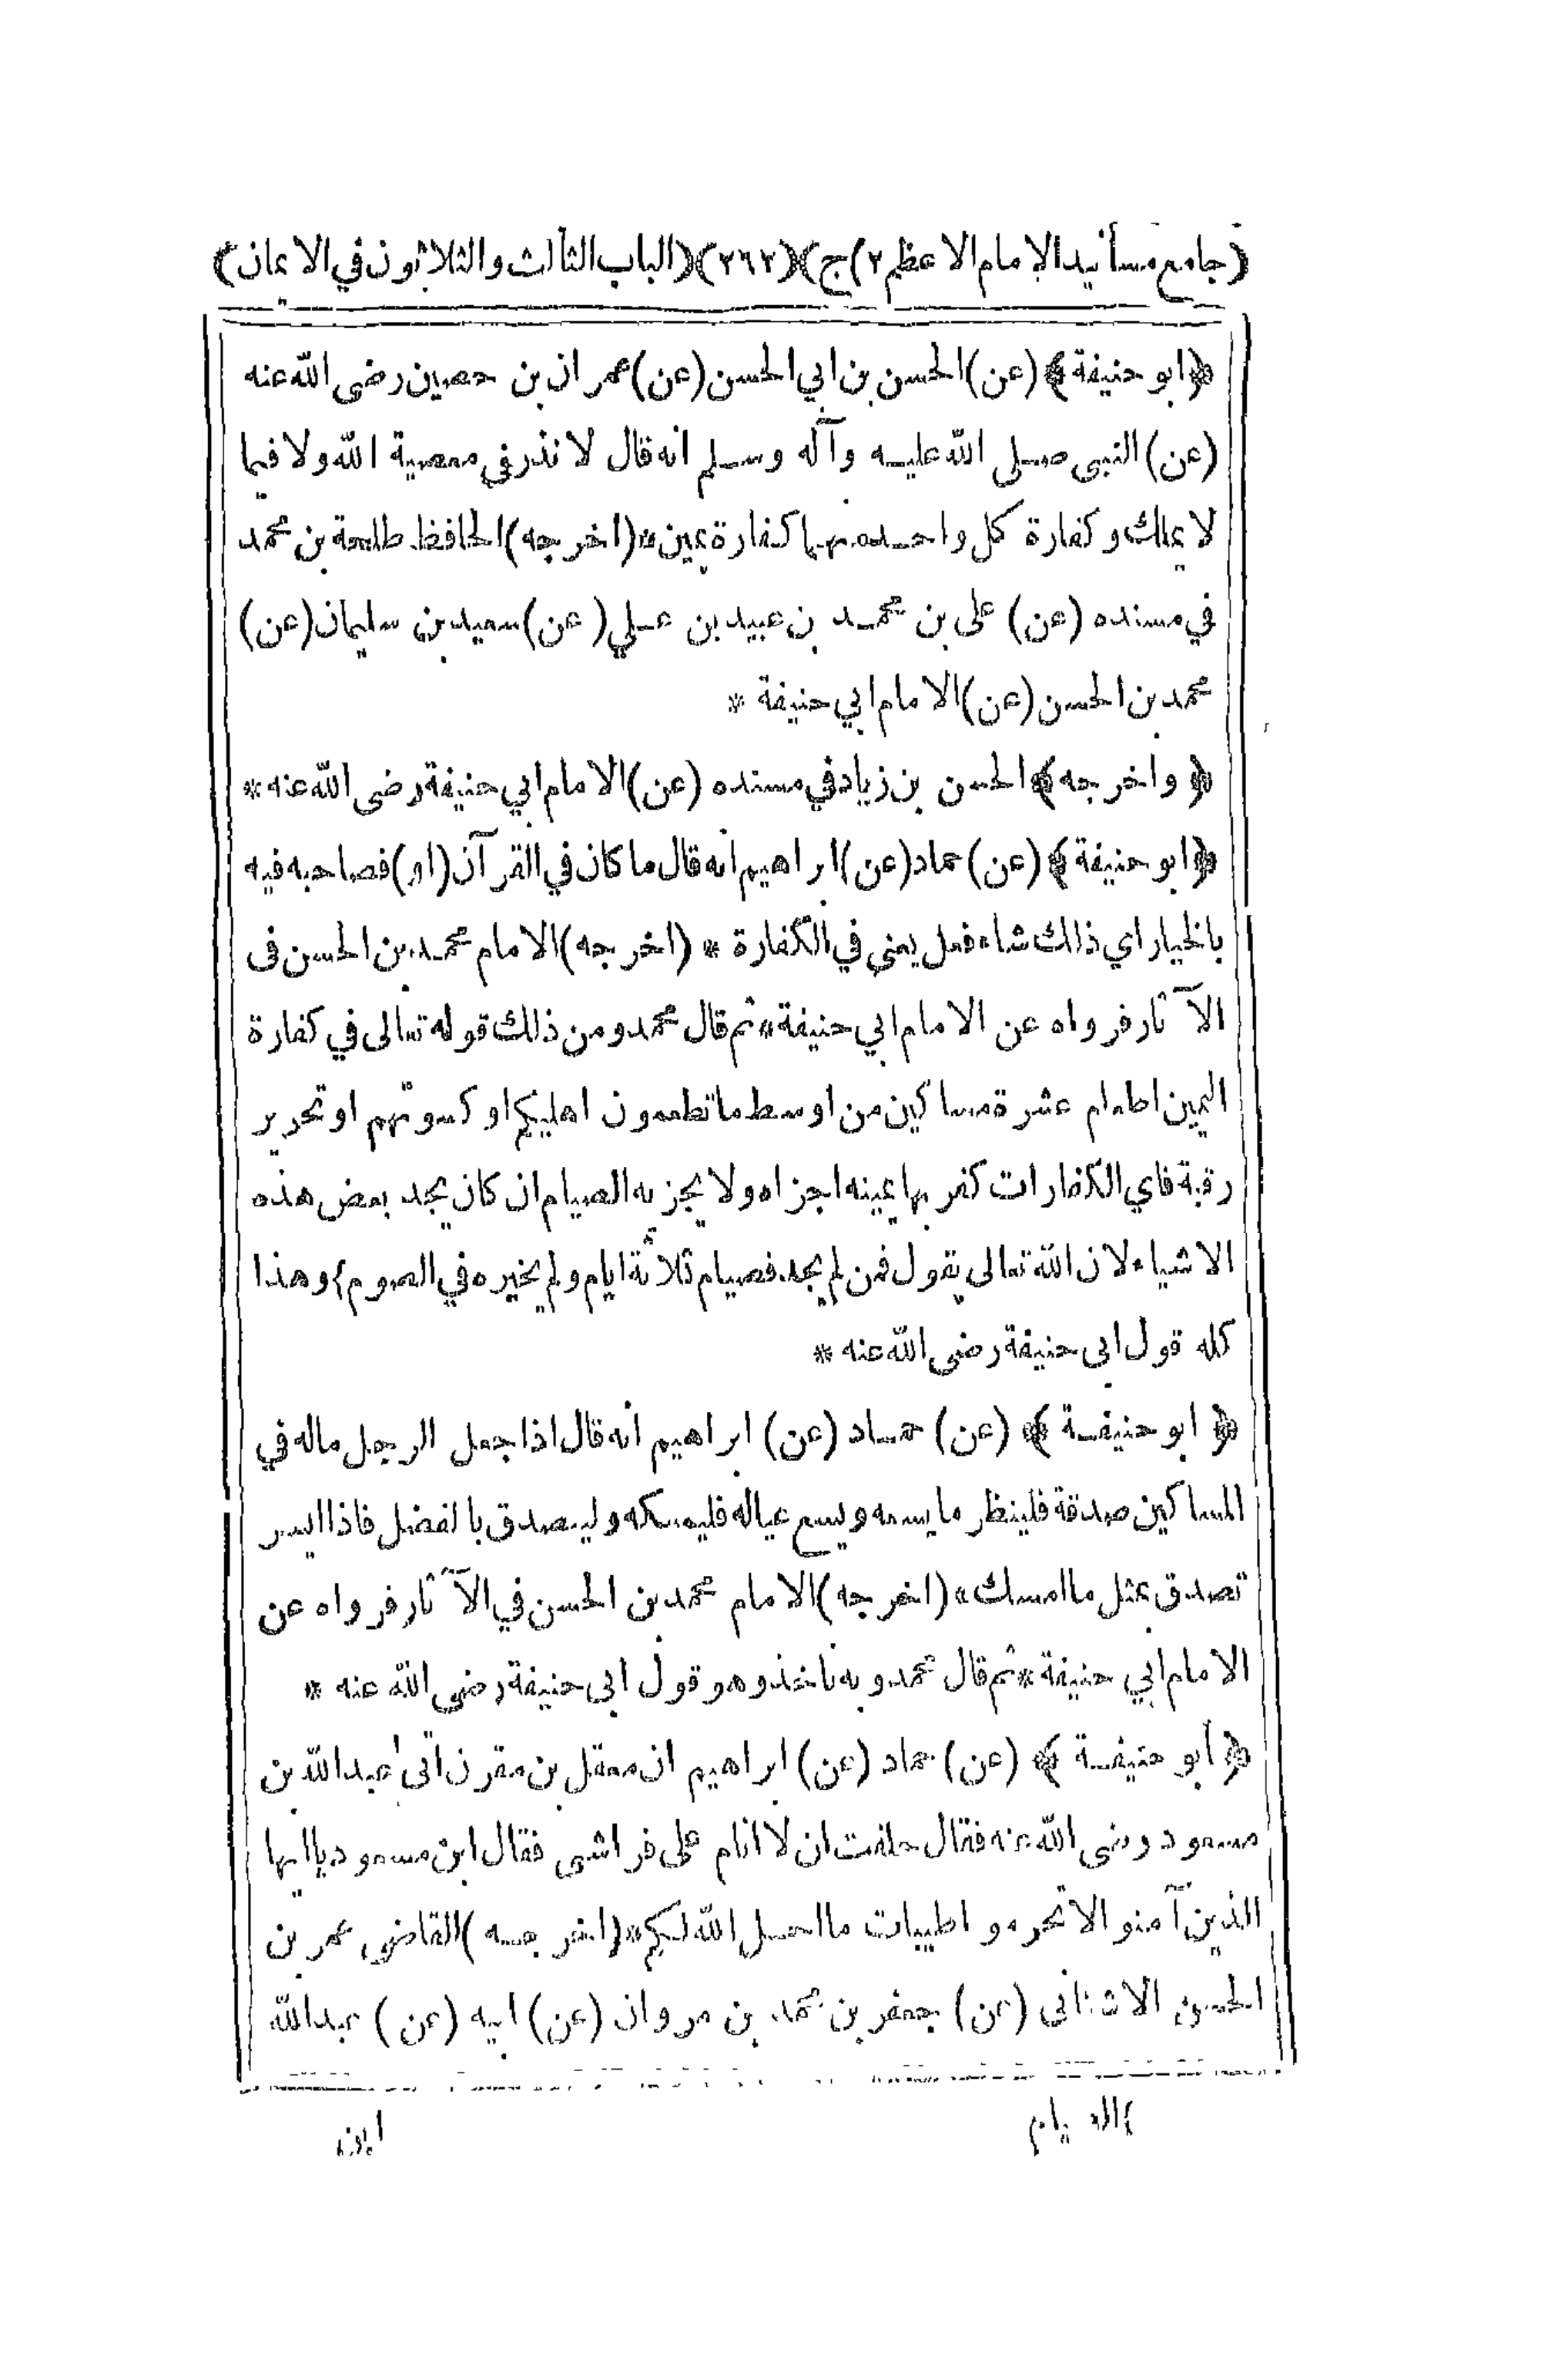 (جامع مسانيد الامام الاعظم ٢)ج)(٢٦٢)(الباب الثالث والثلاثون في الايمان)
﴿ابو حنيفة﴾ (عن) الحسن بن ابي الحسن (عن) عمران بن حصين رضى الله عنه
(عن) النبى صلى الله عليه وآله وسلم انه قال لا نذر في معصية الله ولا فيما
لا يملك وكفارة كل واحد منهما كفارة يمين * (اخرجه) الحافظ طلحة بن محمد
في مسنده (عن) على بن محمد بن عبيد بن علي (عن) سعيد بن سليمان (عن)
محمد بن الحسن (عن) الامام ابي حنيفة *
﴿واخرجه﴾ الحسن بن زياد في مسنده (عن) الامام ابي حنيفة رضى الله عنه *
﴿ابو حنيفة﴾ (عن) حماد (عن) ابراهيم انه قال ما كان في القرآن (او) فصاحبه فيه
بالخيار اي ذلك شاء فعل يعنى في الكفارة * (اخرجه) الامام محمد بن الحسن فى
الآثار فرواه عن الامام ابي حنيفة * ثم قال محمد ومن ذلك قوله تعالى في كفارة
اليمين اطعام عشرة مساكين من اوسط ما تطعمون اهليكم او كسوتهم او تحرير
رقبة فاي الكفارات كفر بها يمينه اجزاه ولا يجزيه الصيام ان كان يجد بعض هذه
الاشياء لان الله تعالى يقول فمن لم يجد فصيام ثلاثة ايام ولم يخيره في الصوم} وهذا
كله قول ابى حنيفة رضى الله عنه *
﴿ابو حنيفة﴾ (عن) حماد (عن) ابراهيم انه قال اذا جعل الرجل ماله في
المساكين صدقة فلينظر ما يسعه ويسع عياله فليمسكه وليصدق بالفضل فاذا ايسر
تصدق بمثل ما امسك * (اخرجه) الامام محمد بن الحسن في الآثار فرواه عن
الامام ابي حنيفة * ثم قال محمد وبه ناخذ وهو قول ابى حنيفة رضى الله عنه *
﴿ابو حنيفة﴾ (عن) حماد (عن) ابراهيم ان معقل بن مقرن اتى عبد الله بن
مسعود رضى الله عنه فقال حلفت ان لا انام على فراشى فقال ابن مسعود يا ايها
الذين آمنوا لا تحرموا طيبات ما احل الله لكم * (اخرجه) القاضى عمر بن
الحسن الاشنانى (عن) جعفر بن محمد بن مروان (عن) ابيه (عن) عبد الله
} الصيام
ابن